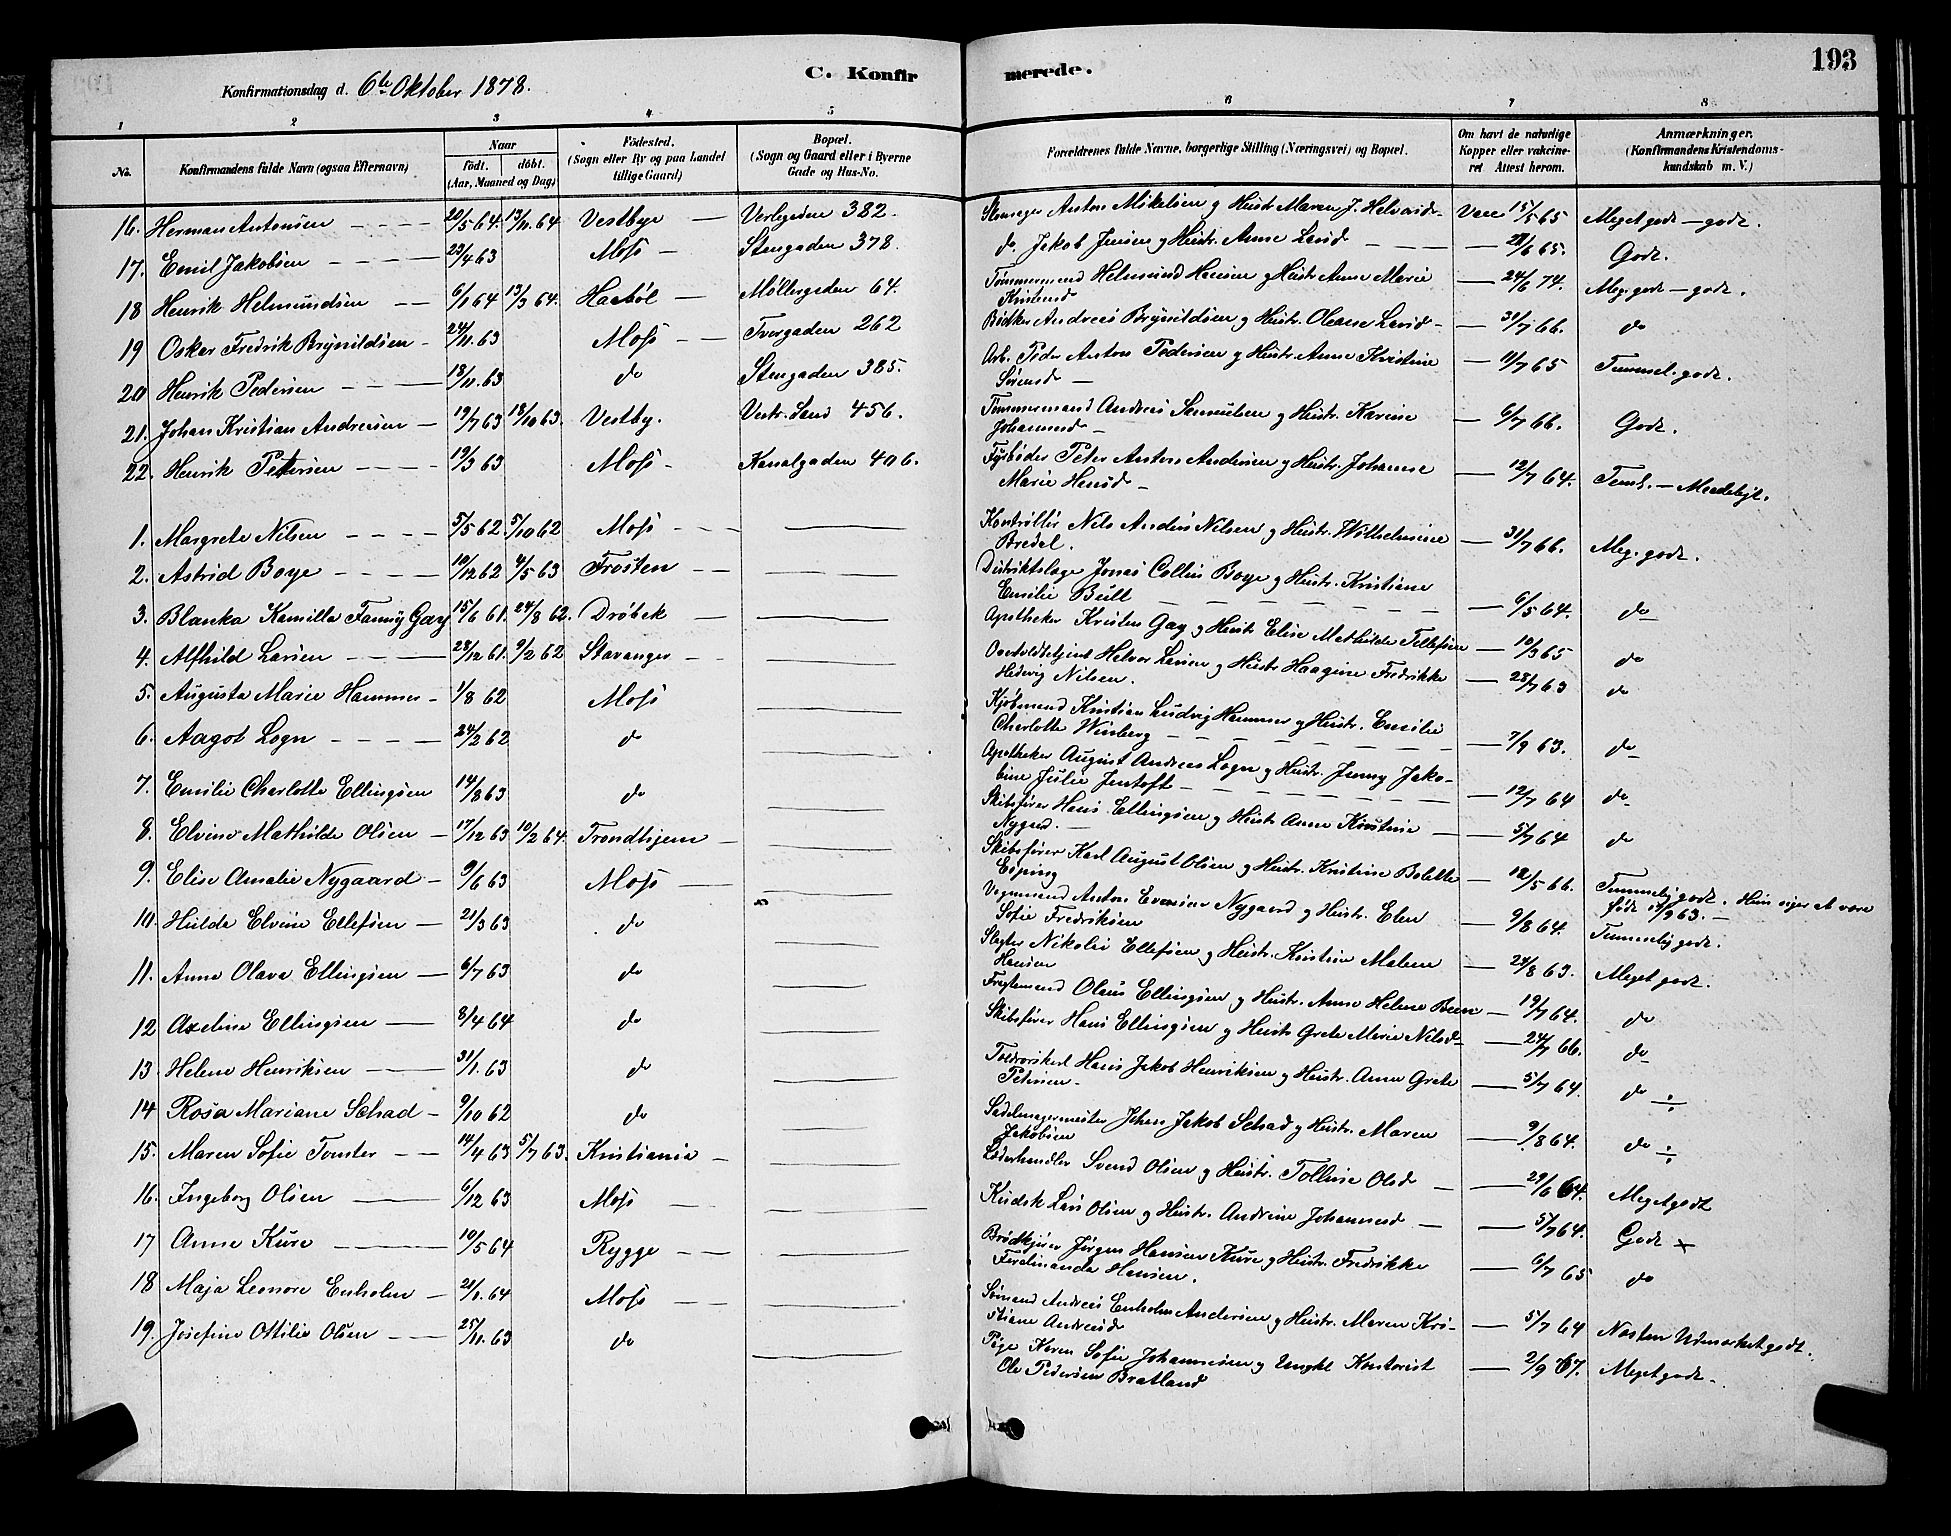 193
Konfirmationsdag d. 6te Oktober 1878.
C. Konfirmerede.
1 2 3 4 5 6 7 8
No. Konfirmandens fulde Navn (ogsaa Efternavn) Naar födt. döbt. (Aar, Maaned og Dag) Födested. (Sogn eller By og paa Landet tillige Gaard) Bopæl. (Sogn og Gaard eller i Byerne Gade og Hus-No. Forældrenes fulde Navne, borgerlige Stilling (Næringsvei) og Bopæl. Om havt de naturlige Kopper eller vaccineret Attest herom. Anmærkninger. (Konfirmandens Kristendomskundskab m. V.)
16. Herman Antonsen 20/5 64. 13/11 64 Vestbye Verlegaden 382. Anton Mikelsen og Hustr Maren J. Helvorsd Vacc 15/5 65 Meget godt - godt.
17. Emil Jakobsen 23/4 63 Moss Stengaden 378. do. Jakob Jensen og Hustr. Anne Larsd 28/6 65. Godt.
18 Henrik Helmundsen 6/1 64 13/3 64. Haabøl Møllergaden 64. Tømmermand Helmund Hansen og Hustr Anne Marie Kristensd 24/6 74. Meg. godt - godt.
19 Oskar Fredrik Brynildsen 24/11 63 Moss Tvergaden 262 Bødker Andreas Brynildsen og Hustr. Oleane Larsd 31/7 66. do
20 Henrik Pedersen 18/11. 63 do Stengaden 385. Arb. Peder Anton Pedersen og Hustr. Anne Kristine Sørensd 11/7 65 Temmel. godt.
21. Johan Kristian Andreasen 19/7 63 18/10 63. Vestby. Vestr. Sand 456. Tømmermand Andreas Samuelsen og Hustr. Karine Johannesd 6/7 66. Godt.
22. Henrik Petersen 19/3 63 Moss Kanalgaden 406. Fyrbøder Peter Anton Andersen og Hustr. Johanne Marie Hansd 12/7 64. Teml. - Maadeligt.
1. Margrete Nilsen 5/5 62. 5/10 62 Moss Kontrollør Nils Anders Nilsen og Hustr. Wilhelmine Bredal. 31/7 66. Meg. godt.
2. Astrid Boye 10/12 62 4/5 63 Frosten Distriktslæge Jonas Collin Boye og Hustr. Kristiane Emilie Bull 6/5 64. do
3. Blanka Kamilla Fanny Gay 15/6 61. 24/8 62. Drøbak Apotheker Kristen Gay og Hustr Elise Mathilde Tellefsen 10/3 65 do
4. Alfhild Larsen 28/12 61. 9/2 62 Stavanger Halvor Larsen og Hustr Haagine Fredrikke Hedvig Nilsen. 28/7 63 do
5. Augusta Marie Hammer 1/8 62 Moss Kjøbmand Kristian Ludvig Hammer og Hustr. Emilie Charlotte Winberg 7/9 63. do
6. Aagot Logn 24/2 62 do Apotheker August Andreas Logn og Hustr. Jenny Jakobine Julie Jentoft 12/7 64 do
7. Emilie Charlotte Ellingsen 14/8 63 do Skibsfører Hans Ellingsen og Hustr Anne Kirstine Nygrd. 5/7 64 do
8. Elvine Mathilde Olsen 17/12 63 10/2 64. Trondhjem Skibsfører Karl August Olsen og Hustr. Kristine Bolette Esping 12/5 66. Temmelig godt. Hun siger at være født 17/9 63.
9. Elise Amalie Nygaard 9/6 63 Moss Vognmand Anton Evensen Nygaard og Hustr. Elen Sofie Fredriksen 9/8 64. Temmelig godt.
10. Hulda Elvine Ellefsen 21/3 63 do Slagter Nikolai Ellefsen og Hustr. Kirstine Malene Hansen 24/8 63. Meget godt.
11. Anna Olava Ellingsen 6/7 63 do Fragtemand Olaus Ellingsen og Hustr. Anne Helene Been 19/7 64. do
12 Axeline Ellingsen 8/4 64 do Skibsfører Hans Ellingsen og Hustr Grete Marie Nilsd 24/7 66. do
13. Helene Henriksen 31/1. 63 do Toldroerskarl Hans Jakob Henriksen og Hustr. Anne Grete Petersen 5/7 64. do ÷
14 Rosa Mariane Schad 9/10 62 do Sadelmagermester Johan Jakob Schad og Hustr. Maren Jakobsen 9/8 64. do ÷
15. Maren Sofie Tomter 14/4 63 5/7 63. Kristiania Læderhandler Svend Olsen og Hustr. Tolline Olsd 29/6 64. Meget godt
16. Ingeborg Olsen 6/12 63 Moss Kudsk Lars Olsen og Hustr. Andrine Johannesd 5/7 64. Godt x
17 Anne Kure 10/5 64 Rygge Brødkjører Jørgen Hansen Kure og Hustr. Fredrikke Ferdinanda Hansen. 6/7 65 do
18 Maja Leonore Enholm 21/1. 64 Moss Sømand Andreas Enholm Andersen og Hustr. Maren Kristiane Andreasd 5/7 64 Næsten Udmærket godt.
19. Josefine Ottilie Olsen 25/11. 63 do Pige Karen Sofie Johannesen og Ungkl Kontorist Ole Pedersen Bratland 2/9 67. Meget godt.